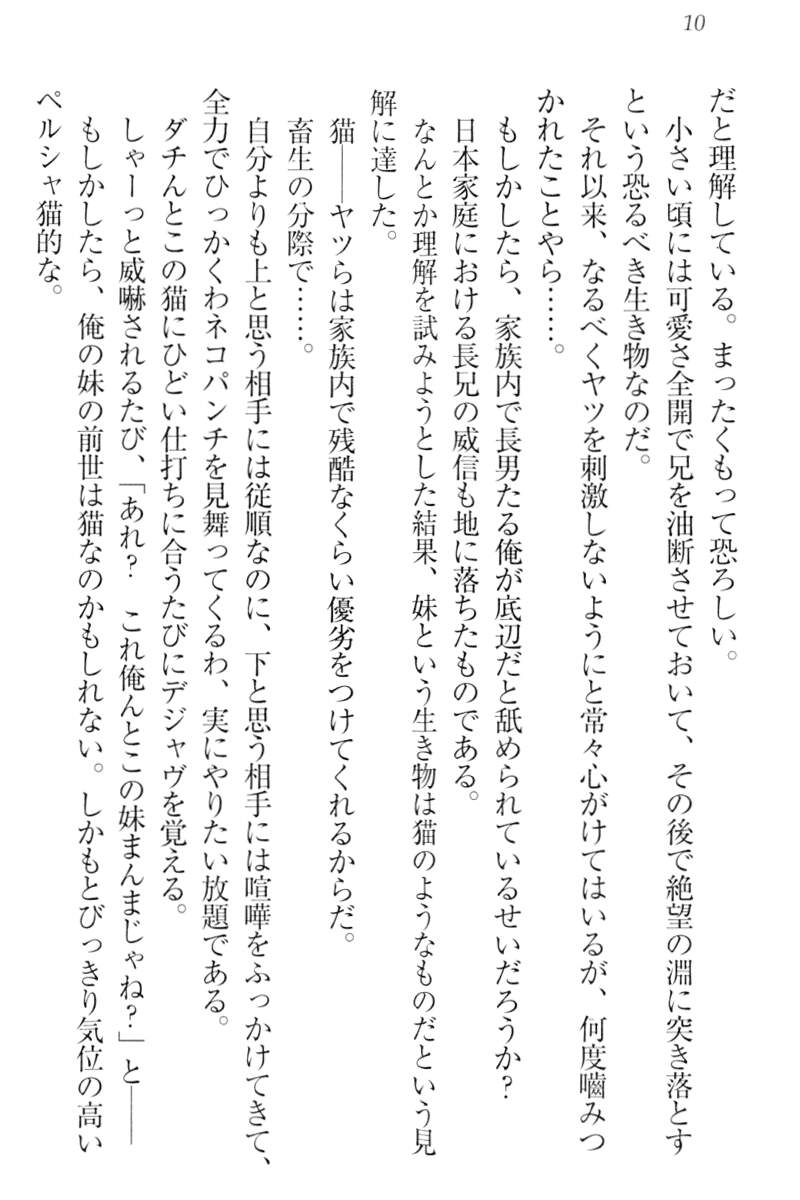 10
だと理解している。まったくもって恐ろしい。
小さい頃には可愛さ全開で兄を油断させておいて、その後で絶望の淵に突き落とす
という恐るべき生き物なのだ。
それ以来、なるべくヤツを刺激しないようにと常々心がけてはいるが、何度嚙みつ
かれたことやら……。
もしかしたら、家族内で長男たる俺が底辺だと舐められているせいだろうか？
日本家庭における長兄の威信も地に落ちたものである。
なんとか理解を試みようとした結果、妹という生き物は猫のようなものだという見
解に達した。
猫――ヤツらは家族内で残酷なくらい優劣をつけてくれるからだ。
畜生の分際で……。
自分よりも上と思う相手には従順なのに、下と思う相手には喧嘩をふっかけてきて、
全力でひっかくわネコパンチを見舞ってくるわ、実にやりたい放題である。
ダチんとこの猫にひどい仕打ちに合うたびにデジャヴを覚える。
しゃーっと威嚇されるたび、「あれ？　これ俺んとこの妹まんまじゃね？」と――
もしかしたら、俺の妹の前世は猫なのかもしれない。しかもとびっきり気位の高い
ペルシャ猫的な。